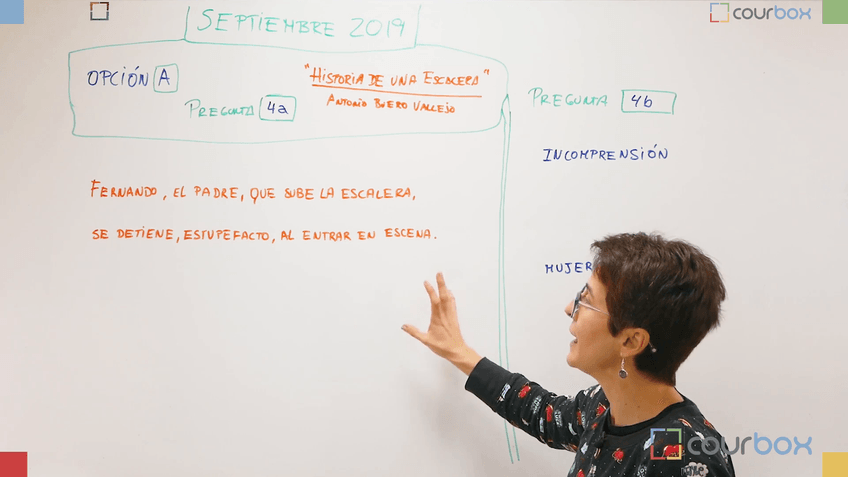 SEPTIEMBRE 2019
OPCIÓN A
"HISTORIA DE UNA ESCALERA"
ANTONIO BUERO VALLEJO
PREGUNTA 4a
FERNANDO, EL PADRE, QUE SUBE LA ESCALERA,
SE DETIENE, ESTUPEFACTO, AL ENTRAR EN ESCENA.
PREGUNTA 4b
INCOMPRENSIÓN
courbox
courbox